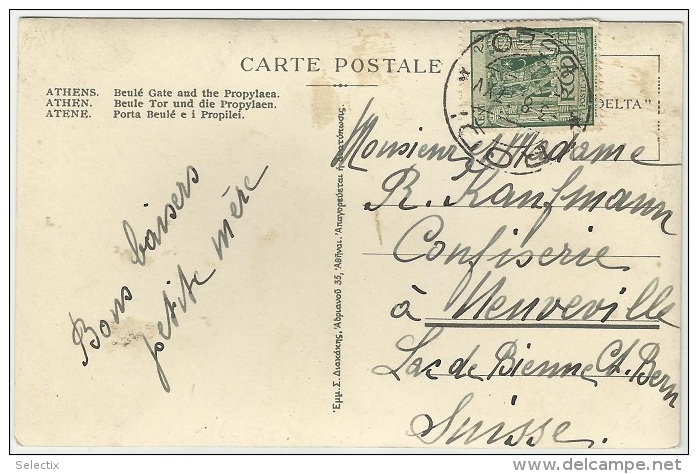 CARTE POSTALE
ATHENS. Beulé Gate and the Propylaea.
ATHEN. Beule Tor und die Propylaen.
ATENE. Porta Beulé e i Propilei.
DELTA"
Bons baisers
petite mère
Ἐμμ. Σ. Διακάκης, Ἀδριανοῦ 35, Ἀθῆναι. Ἀπαγορεύεται ἡ ἀνατύπωσις.
Monsieur et Madame
R. Kaufmann
Confiserie
à Neuveville
Lac de Bienne Ct. Bern
Suisse.
Selectix
delcampe.net